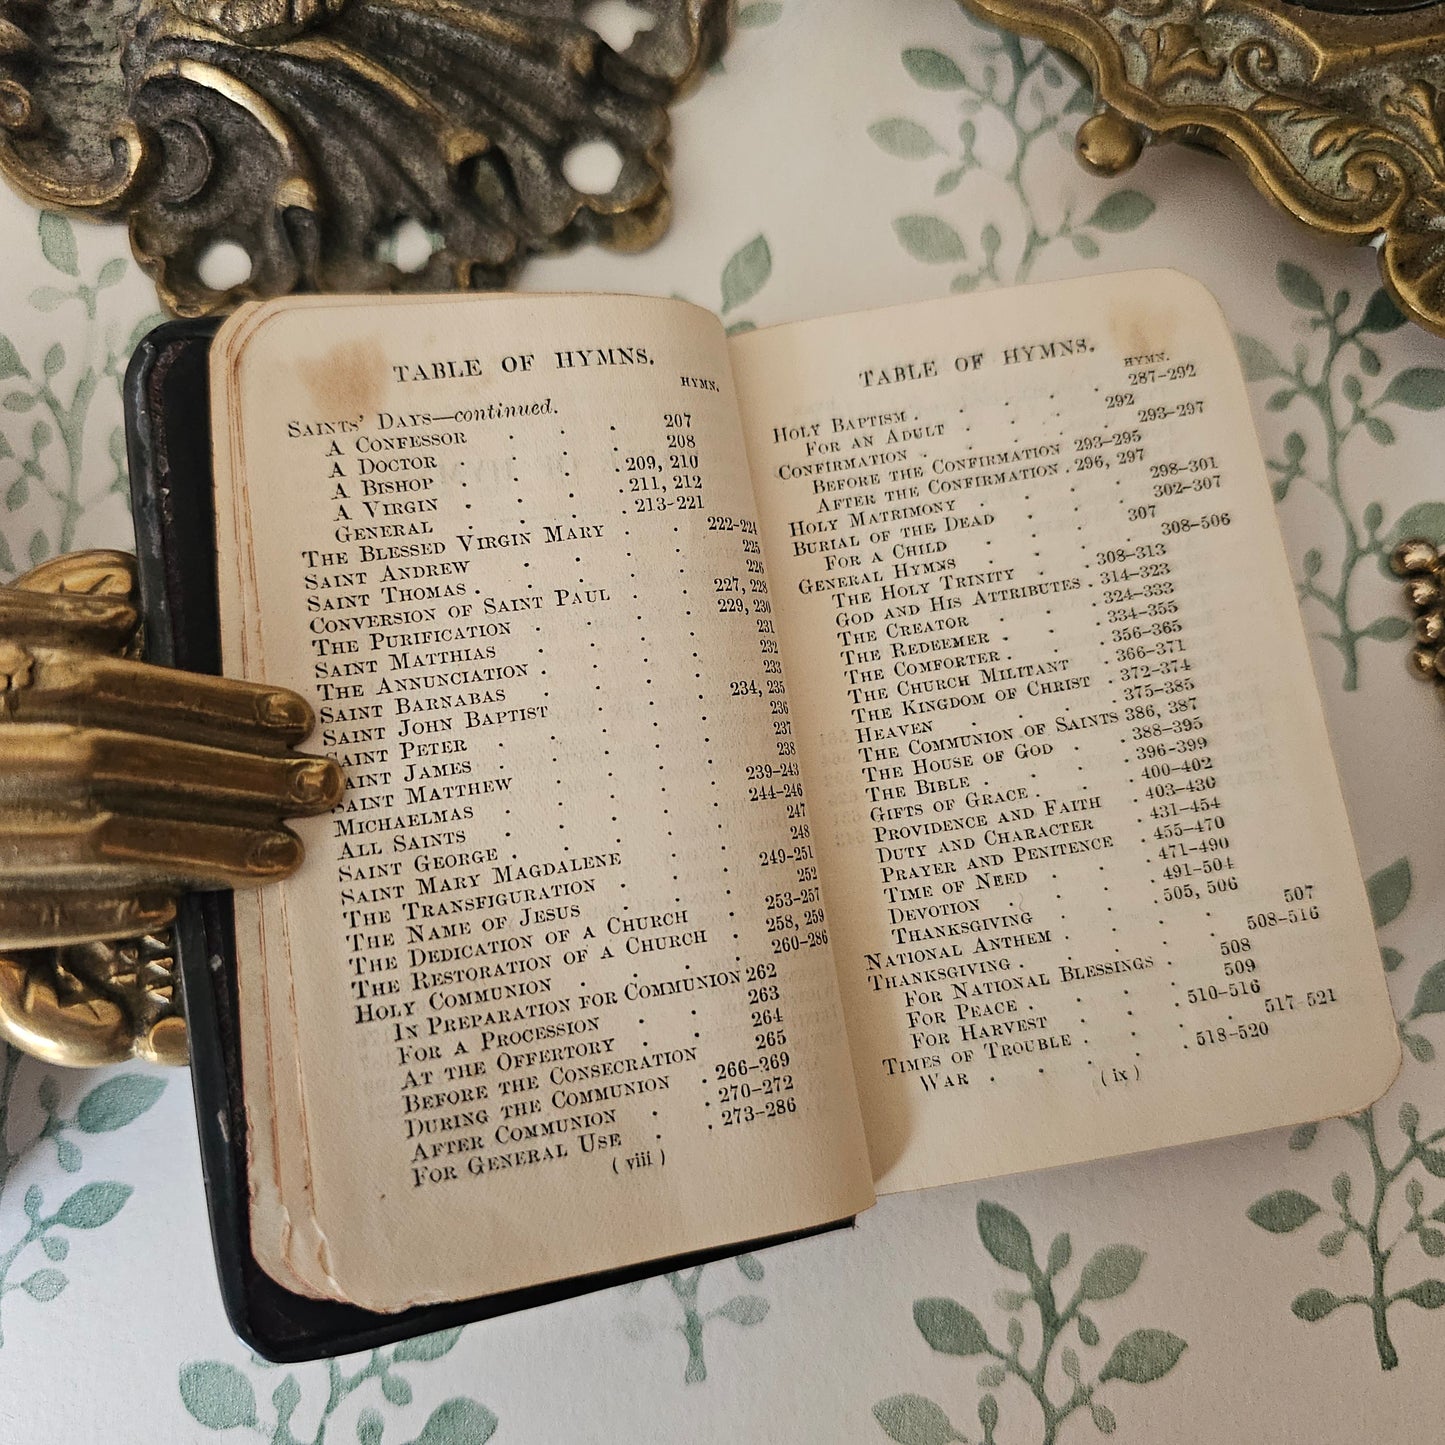 TABLE OF HYMNS.
HYMN.
SAINTS' DAYS—continued.
A CONFESSOR . . . 207
A DOCTOR . . . 208
A BISHOP . . . 209, 210
A VIRGIN . . . 211, 212
GENERAL . . . 213-221
THE BLESSED VIRGIN MARY . . 222-224
SAINT ANDREW . . . . 225
SAINT THOMAS . . . . 226
CONVERSION OF SAINT PAUL . . 227, 228
THE PURIFICATION . . . 229, 230
SAINT MATTHIAS . . . . 231
THE ANNUNCIATION . . . . 232
SAINT BARNABAS . . . . 233
SAINT JOHN BAPTIST . . . 234, 235
SAINT PETER . . . . 236
SAINT JAMES . . . . 237
SAINT MATTHEW . . . . 238
MICHAELMAS . . . . 239-243
ALL SAINTS . . . . 244-246
SAINT GEORGE . . . . 247
SAINT MARY MAGDALENE . . 248
THE TRANSFIGURATION . . . 249-251
THE NAME OF JESUS . . . 252
THE DEDICATION OF A CHURCH . 253-257
THE RESTORATION OF A CHURCH . 258, 259
HOLY COMMUNION . . . . 260-286
IN PREPARATION FOR COMMUNION 262
FOR A PROCESSION . . 263
AT THE OFFERTORY . . 264
BEFORE THE CONSECRATION 265
DURING THE COMMUNION . 266-269
AFTER COMMUNION . . 270-272
FOR GENERAL USE . . 273-286
( viii )
TABLE OF HYMNS.
HYMN.
HOLY BAPTISM . . . . . 287-292
FOR AN ADULT . . . 292
CONFIRMATION . . . . . 293-297
BEFORE THE CONFIRMATION 293-295
AFTER THE CONFIRMATION . 296, 297
HOLY MATRIMONY . . . . 298-301
BURIAL OF THE DEAD . . . 302-307
FOR A CHILD . . . 307
GENERAL HYMNS . . . . 308-506
THE HOLY TRINITY . . 308-313
GOD AND HIS ATTRIBUTES . 314-323
THE CREATOR . . . 324-333
THE REDEEMER . . . 334-355
THE COMFORTER . . . 356-365
THE CHURCH MILITANT . 366-371
THE KINGDOM OF CHRIST . 372-374
HEAVEN . . . . 375-385
THE COMMUNION OF SAINTS 386, 387
THE HOUSE OF GOD . . 388-395
THE BIBLE . . . . 396-399
GIFTS OF GRACE . . . 400-402
PROVIDENCE AND FAITH . 403-430
DUTY AND CHARACTER . 431-454
PRAYER AND PENITENCE . 455-470
TIME OF NEED . . . 471-490
DEVOTION . . . . 491-504
THANKSGIVING . . . 505, 506
NATIONAL ANTHEM . . . . 507
THANKSGIVING . . . . . 508-516
FOR NATIONAL BLESSINGS . 508
FOR PEACE . . . . 509
FOR HARVEST . . . 510-516
TIMES OF TROUBLE . . . . 517-521
WAR . . . . . 518-520
( ix )